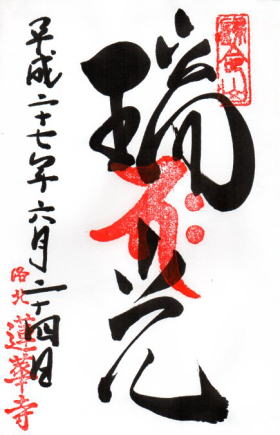 瑞光
平成二十七年六月二十四日
洛北 蓮華寺